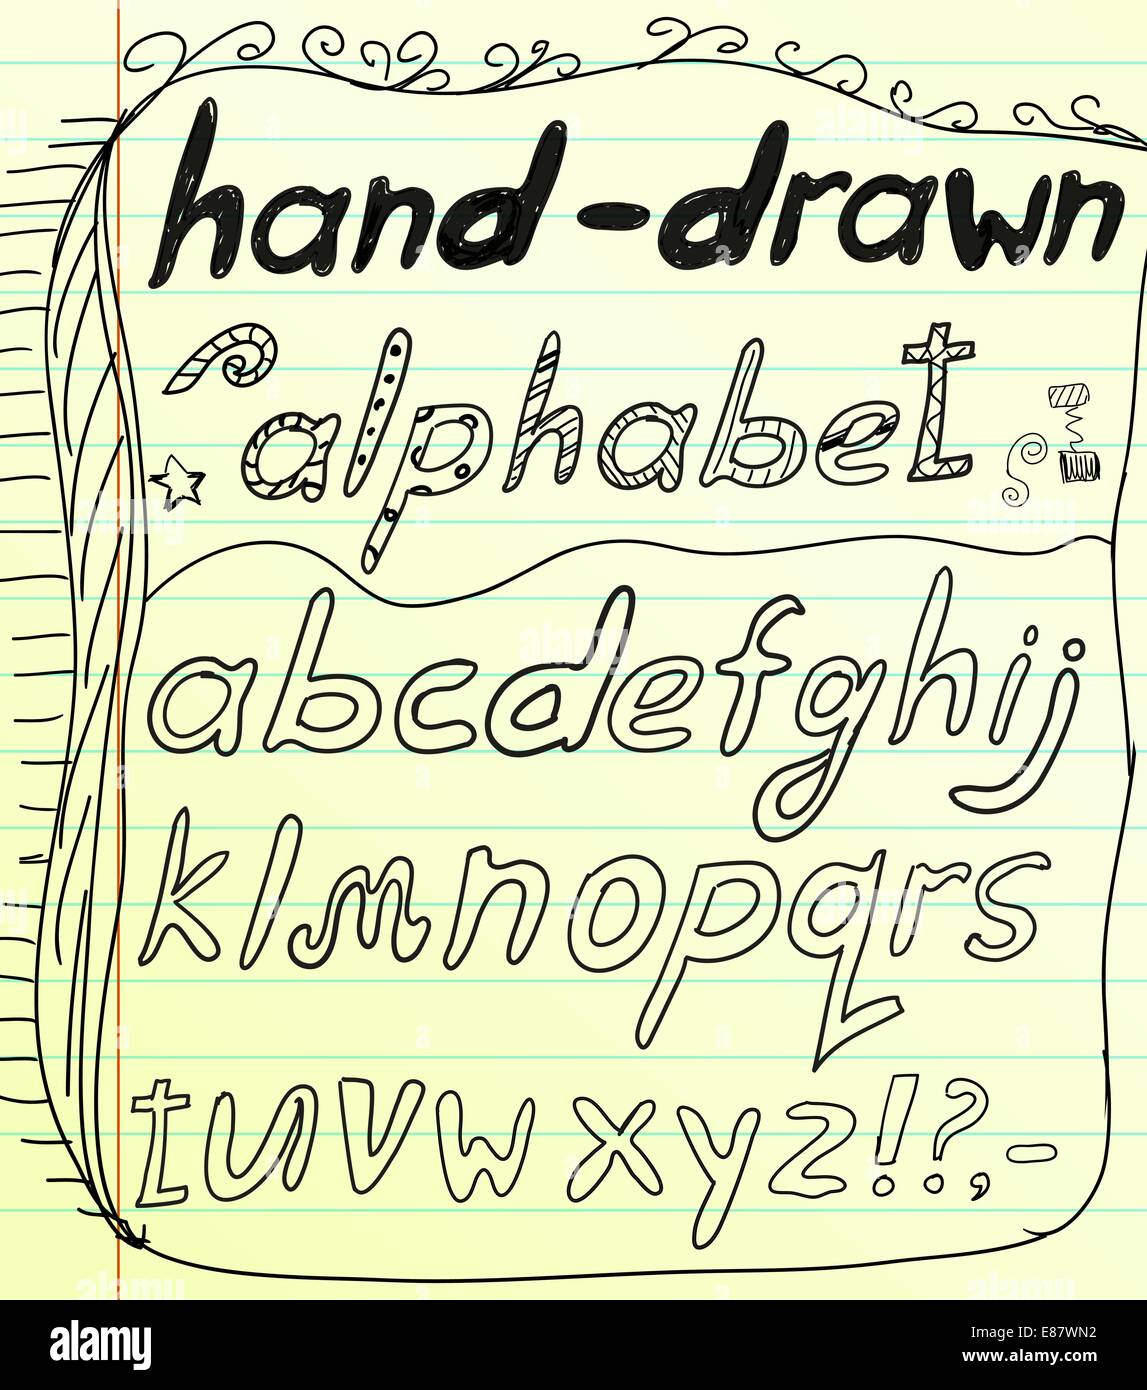 hand-drawn
alphabet
abcdefghij
klmnopqrs
tuvwxyz!?,-
alamy
Image ID: E87WN2
www.alamy.com